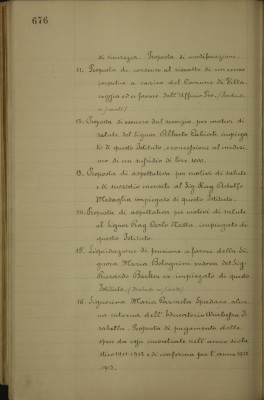 676
di sicurezza. Proposta di modificazione.
11. Proposta di consenso al riscatto di un censo
perpetuo a carico del Comune di Villa
reggia ed a favore dell'Ufficio Pio.
12. Proposta di esonero dal servizio, per motivi di
salute del Signor Alberto impiega
to di questo Istituto, e concessione al medesi
mo di un sussidio di Lire 1000.
13. Proposta di aspettativa per motivi di salute
e di sussidio mensile al Sig. Rag. Adolfo
Medaglia impiegato di questo Istituto.
14. Proposta di aspettativa per motivi di salute
al Signor Rag. Carlo impiegato di
questo Istituto.
15. Liquidazione di pensione a favore della Si
gnora Maria Bolognini vedova del Sig.
Riccardo ex impiegato di questo
Istituto.
16. Signorina Maria Spadaro alun
na interna dell'Educatorio Duchessa I
sabella. Proposta di pagamento delle
spese da essa incontrate nell'anno scola
stico 1911-1912 e di conferma per l'anno 1912
1913.